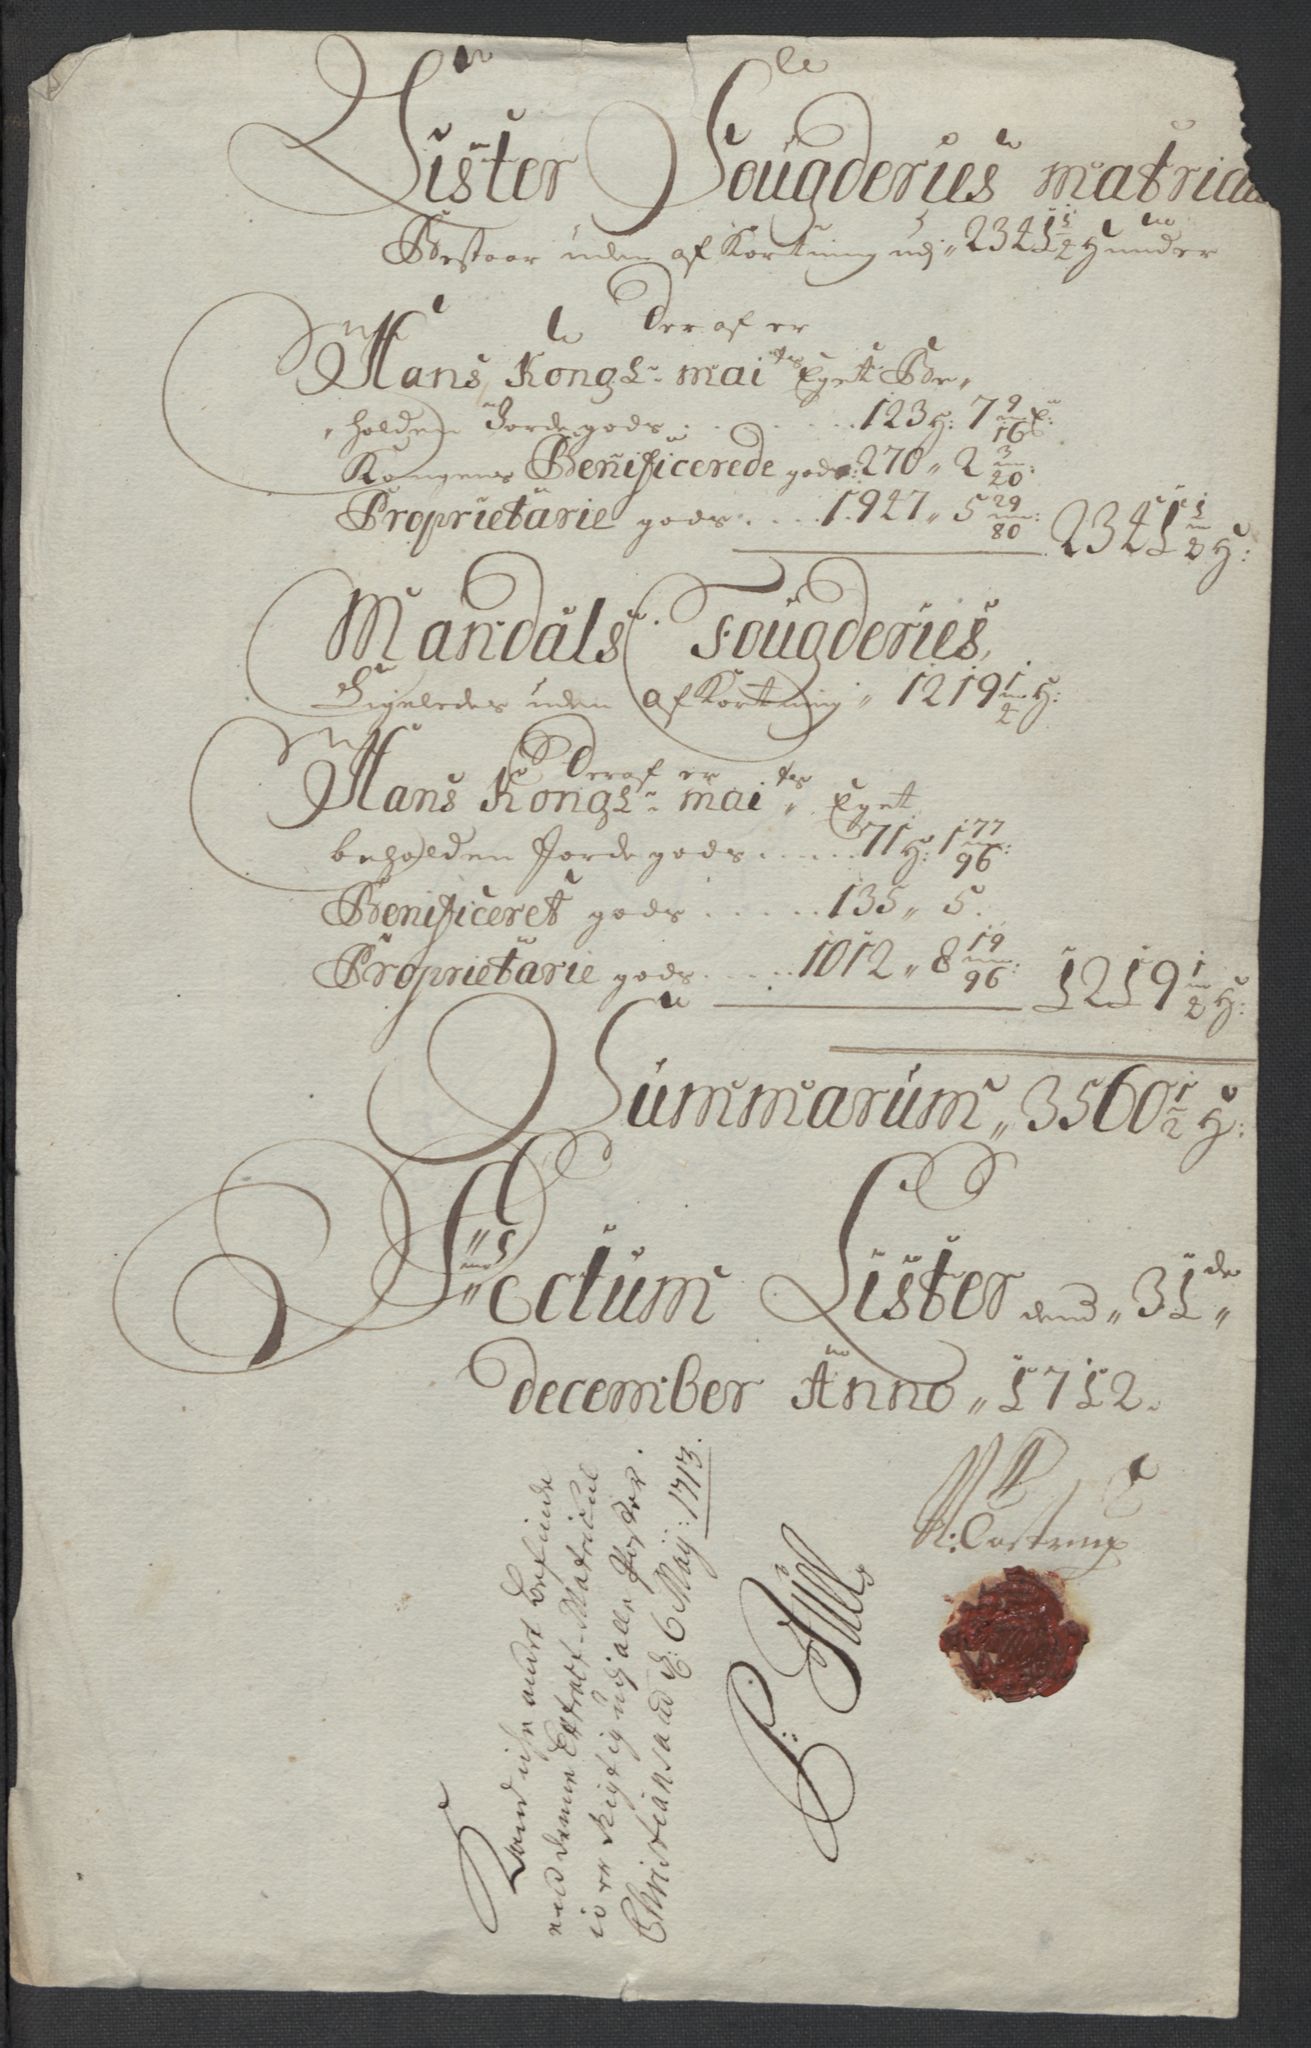 Lister Fougderies matricul
Bestaar uden af Kortning udj „ 2341 1/2 Hunder
Der af er
Hans Kongl: maits Eget Be,
, holden Jorde gods . . . . . . 123 H: 7 9/16 E:
Kongens Benificerede gods: 270 „ 2 3/20:
Proprietarie gods . . . . 1947 „ 5 29/80: 2341 1/2 H:
Mandals Fougderies,
Ligeledes uden af Kortning „ 1219 1/2 H:
Deraf er
Hans Kongl: maits „ Eget
beholden Jorde gods . . . . . 71 H: 1 77/96:
Benificeret gods . . . . . 135 „ 5.
Proprietarie gods . . . . . 1012 „ 8 19/96: 1219 1/2 H:
Summarum „ 3560 1/2 H:
Actum Lister dend „ 31de „
december Anno „ 1712.
N: Costrup
Land ish andet befinde
end denne Extract-Matricul
jo er Rigtig udj alle Poster.
Christiansand d: 6 Maij: 1713.
P: Juell